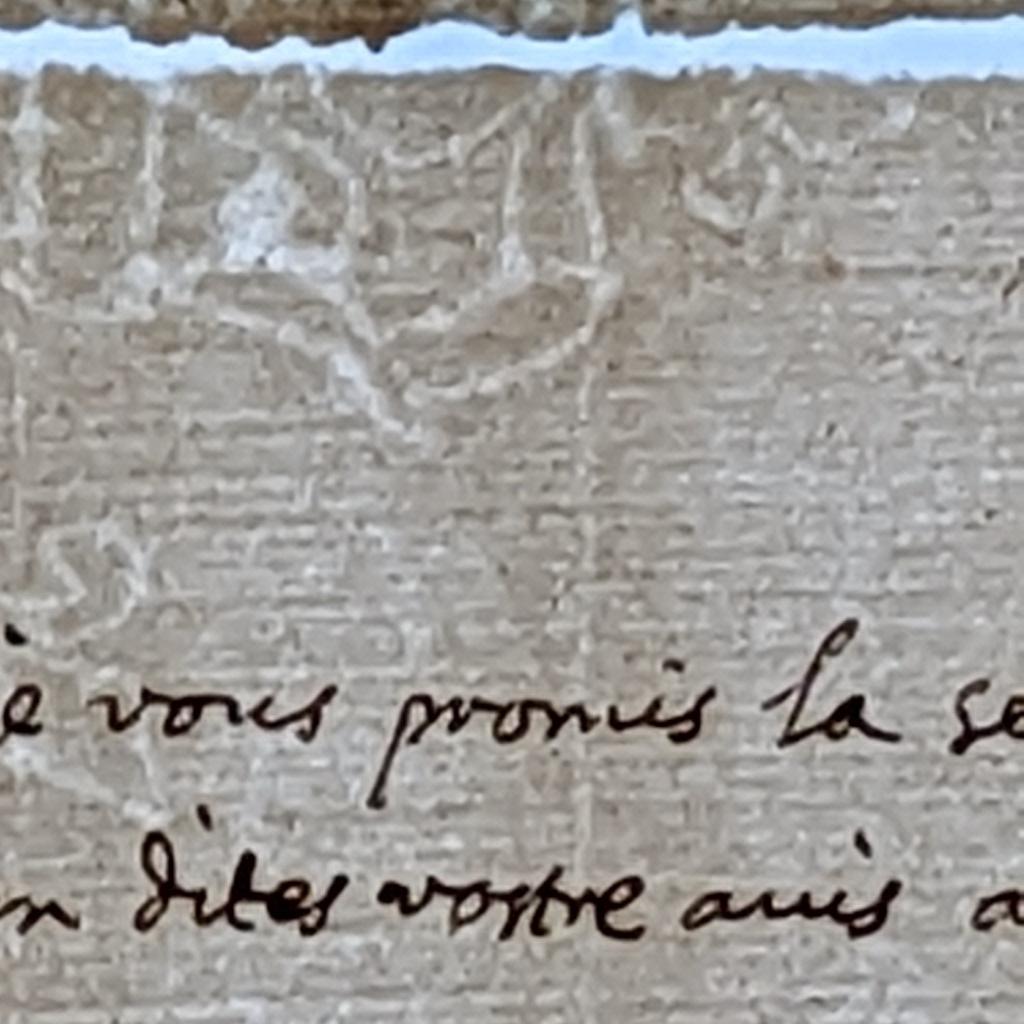 je vous promis la se
n dites vostre auis a